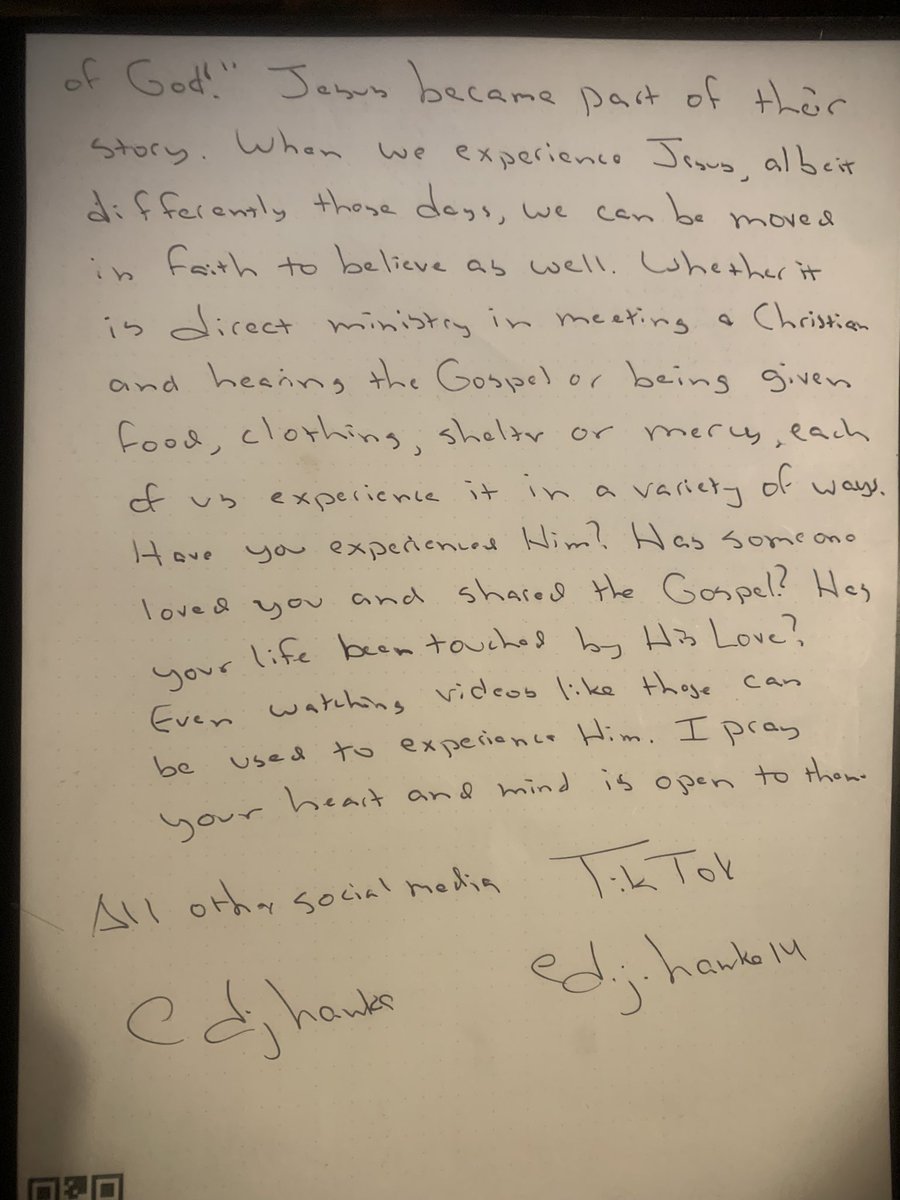 of God!'" Jesus became part of their
story. When we experience Jesus, albeit
differently these days, we can be moved
in faith to believe as well. Whether it
is direct ministry in meeting a Christian
and hearing the Gospel or being given
food, clothing, shelter or mercy, each
of us experience it in a variety of ways.
Have you experienced Him? Has someone
loved you and shared the Gospel? Has
your life been touched by His Love?
Even watching videos like these can
be used to experience Him. I pray
your heart and mind is open to them.
All other social media TikTok
@djhawke @d.j.hawke14